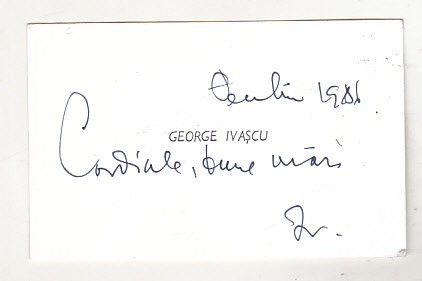 Pentru 1986
GEORGE IVAȘCU
Cordiale, bune urări
Iv.